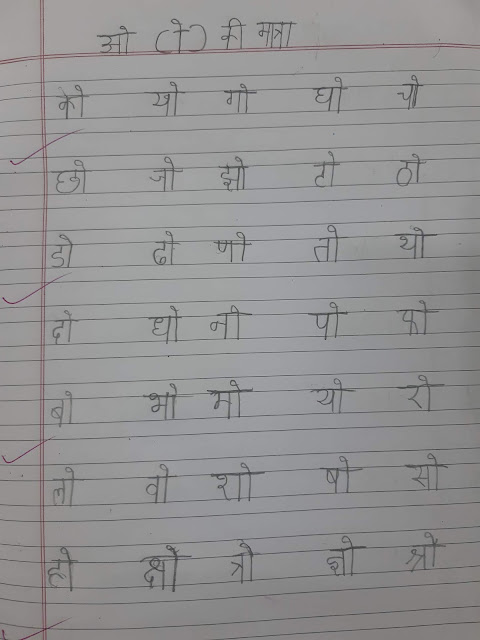 ओ (ो) की मात्रा
को खो गो घो चो
छो जो झो टो ठो
डो ढो णो तो थो
दो धो नो पो फो
बो भो मो यो रो
लो वो शो षो सो
हो क्षो त्रो ज्ञो श्रो